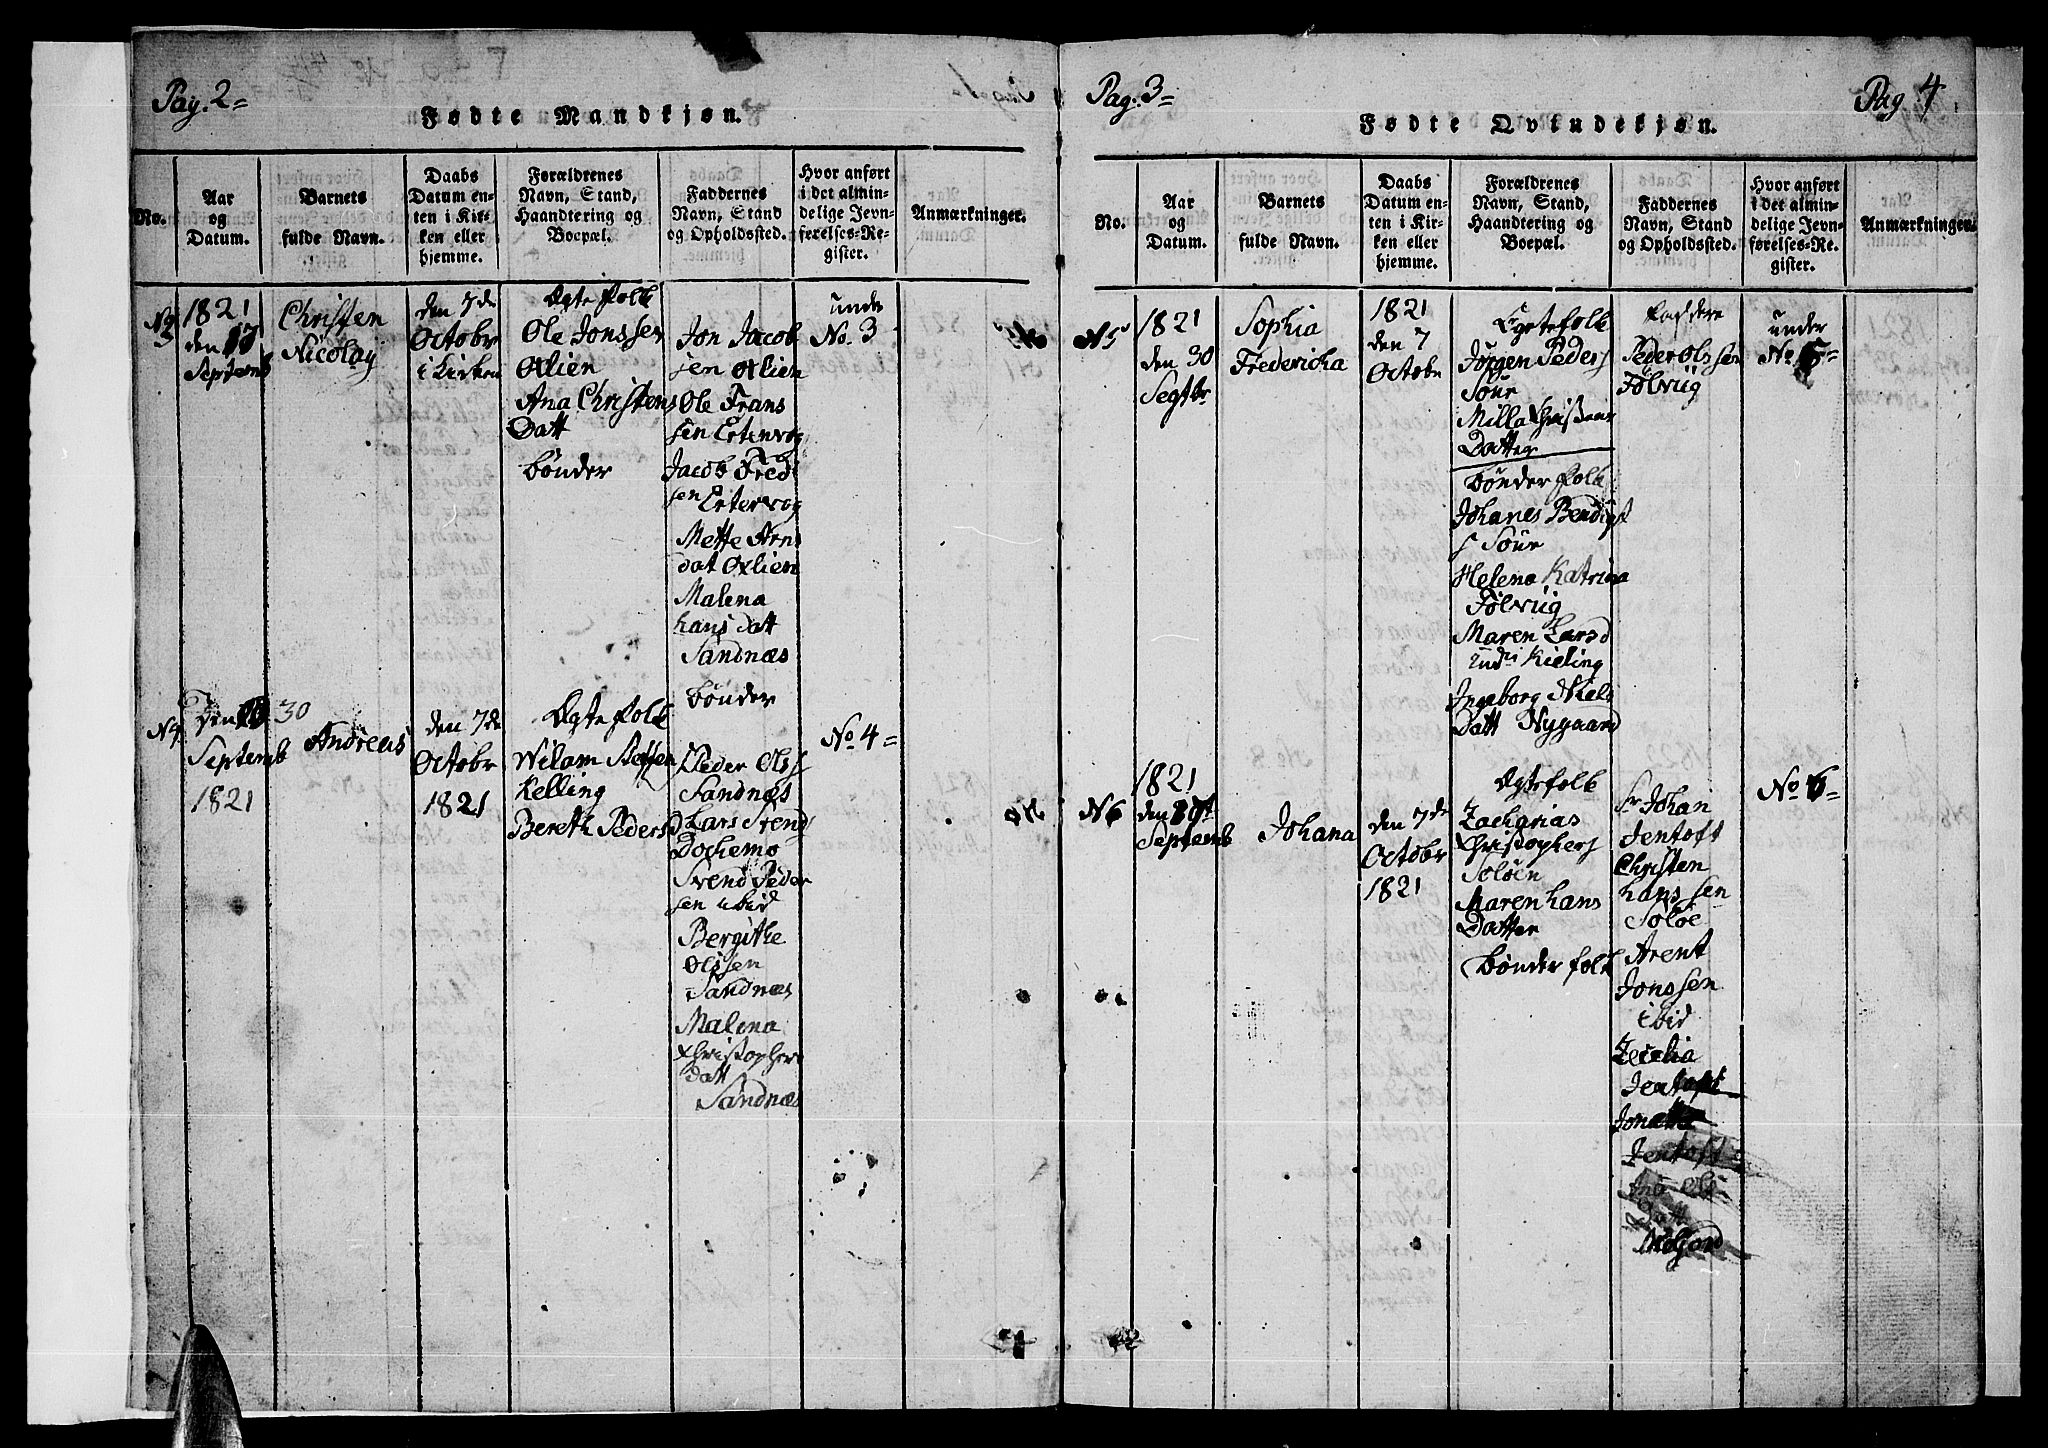 Pag. 2=
Fødte Mandkjøn.
No.
Aar
og
Datum.
Barnets
fulde Navn.
Daabs
Datum en-
ten i Kir-
ken eller
hjemme.
Forældrenes
Navn, Stand,
Haandtering og
Boepæl.
Faddernes
Navn, Stand
og Opholdssted.
Hvor anført
i det almin-
delige Jevn-
førelses-Re-
gister.
Anmærkninger.
No
3
1821
den 17
Septemb
Christen
Nicolay
den 7de
Octobr
i Kirken
Ægte folk
Ole Jonssen
Oxlien
Ana Christens
Datt
bønder
Jon Jacob
sen Oxlien
Ole Frans
sen Ertenvog
Jacob Fred
sen Ertervog
Mette Arns
dat Oxlien
Malena
hans Datt
Sandnæs
bønder
under
No. 3
N4
den 30
Septemb
1821
Andreas
den 7de
Octobr
1821
Ægte folk
Wilam
Kelling
Bereth Pedersd
Peder Ols
Sandnæs
Lars Svend
Dochemo
Svend Peder
sen ibid
Bergithe
Olssen
Sandnæs
Malena
Christopher
Datt
Sandnæs
No 4=
Pag: 3=
Pag 4
Fødte Qvindekjøn.
No.
Aar
og
Datum.
Barnets
fulde Navn.
Daabs
Datum en-
ten i Kir-
ken eller
hjemme.
Forældrenes
Navn, Stand,
Haandtering og
Boepæl.
Faddernes
Navn, Stand
og Opholdssted.
Hvor anført
i det almin-
delige Jevn-
førelses-Re-
gister.
Anmærkninger.
N5
1821
den 30
Segtbr
Sophia
Fredericka
1821
den 7
Octobr
Egtefolk
Jörgen Peders
Søur
Milla Christians
Datter
bønder folk
Johanes Bendigt
s Søur
Helena Katrina
Fölvüg
Maren Larsd
Kieling
Ingeborg Niels
Datt Nygaard
Faddere
Peder Olssen
Fölvüg
under
No 5=
N6
1821
den 19t
Septemb
Johana
den 7de
Octobr
1821
Ægtefolk
Zacharias
Christophers
Soløen
Maren hans
Datter
bønder folk
Sr Johan
Jentoft
Christen
hans sen
Soløe
Arent
Jonssen
ibid
Zecelia
Jentoft
Jentoft
Datt
No 6=